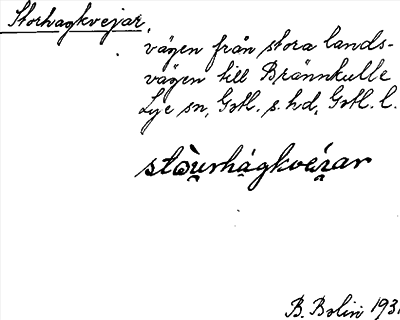 Storhagkvejar,
vägen från stora lands-
vägen till Brännkulle
Lye sn, Gotl. s. hd, Gotl. l.
stòu̯rhagkvéi̯ar
B. Bolin 193